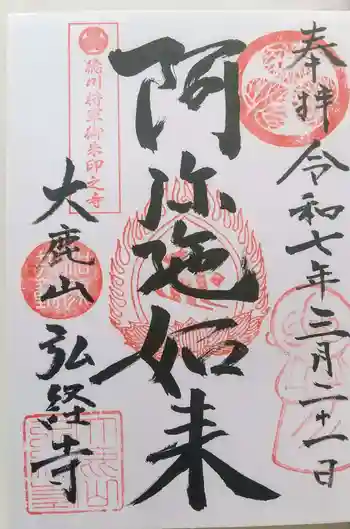 奉拝
令和七年三月二十一日
阿弥陀如来
徳川将軍御朱印之寺
大鹿山
弘経寺